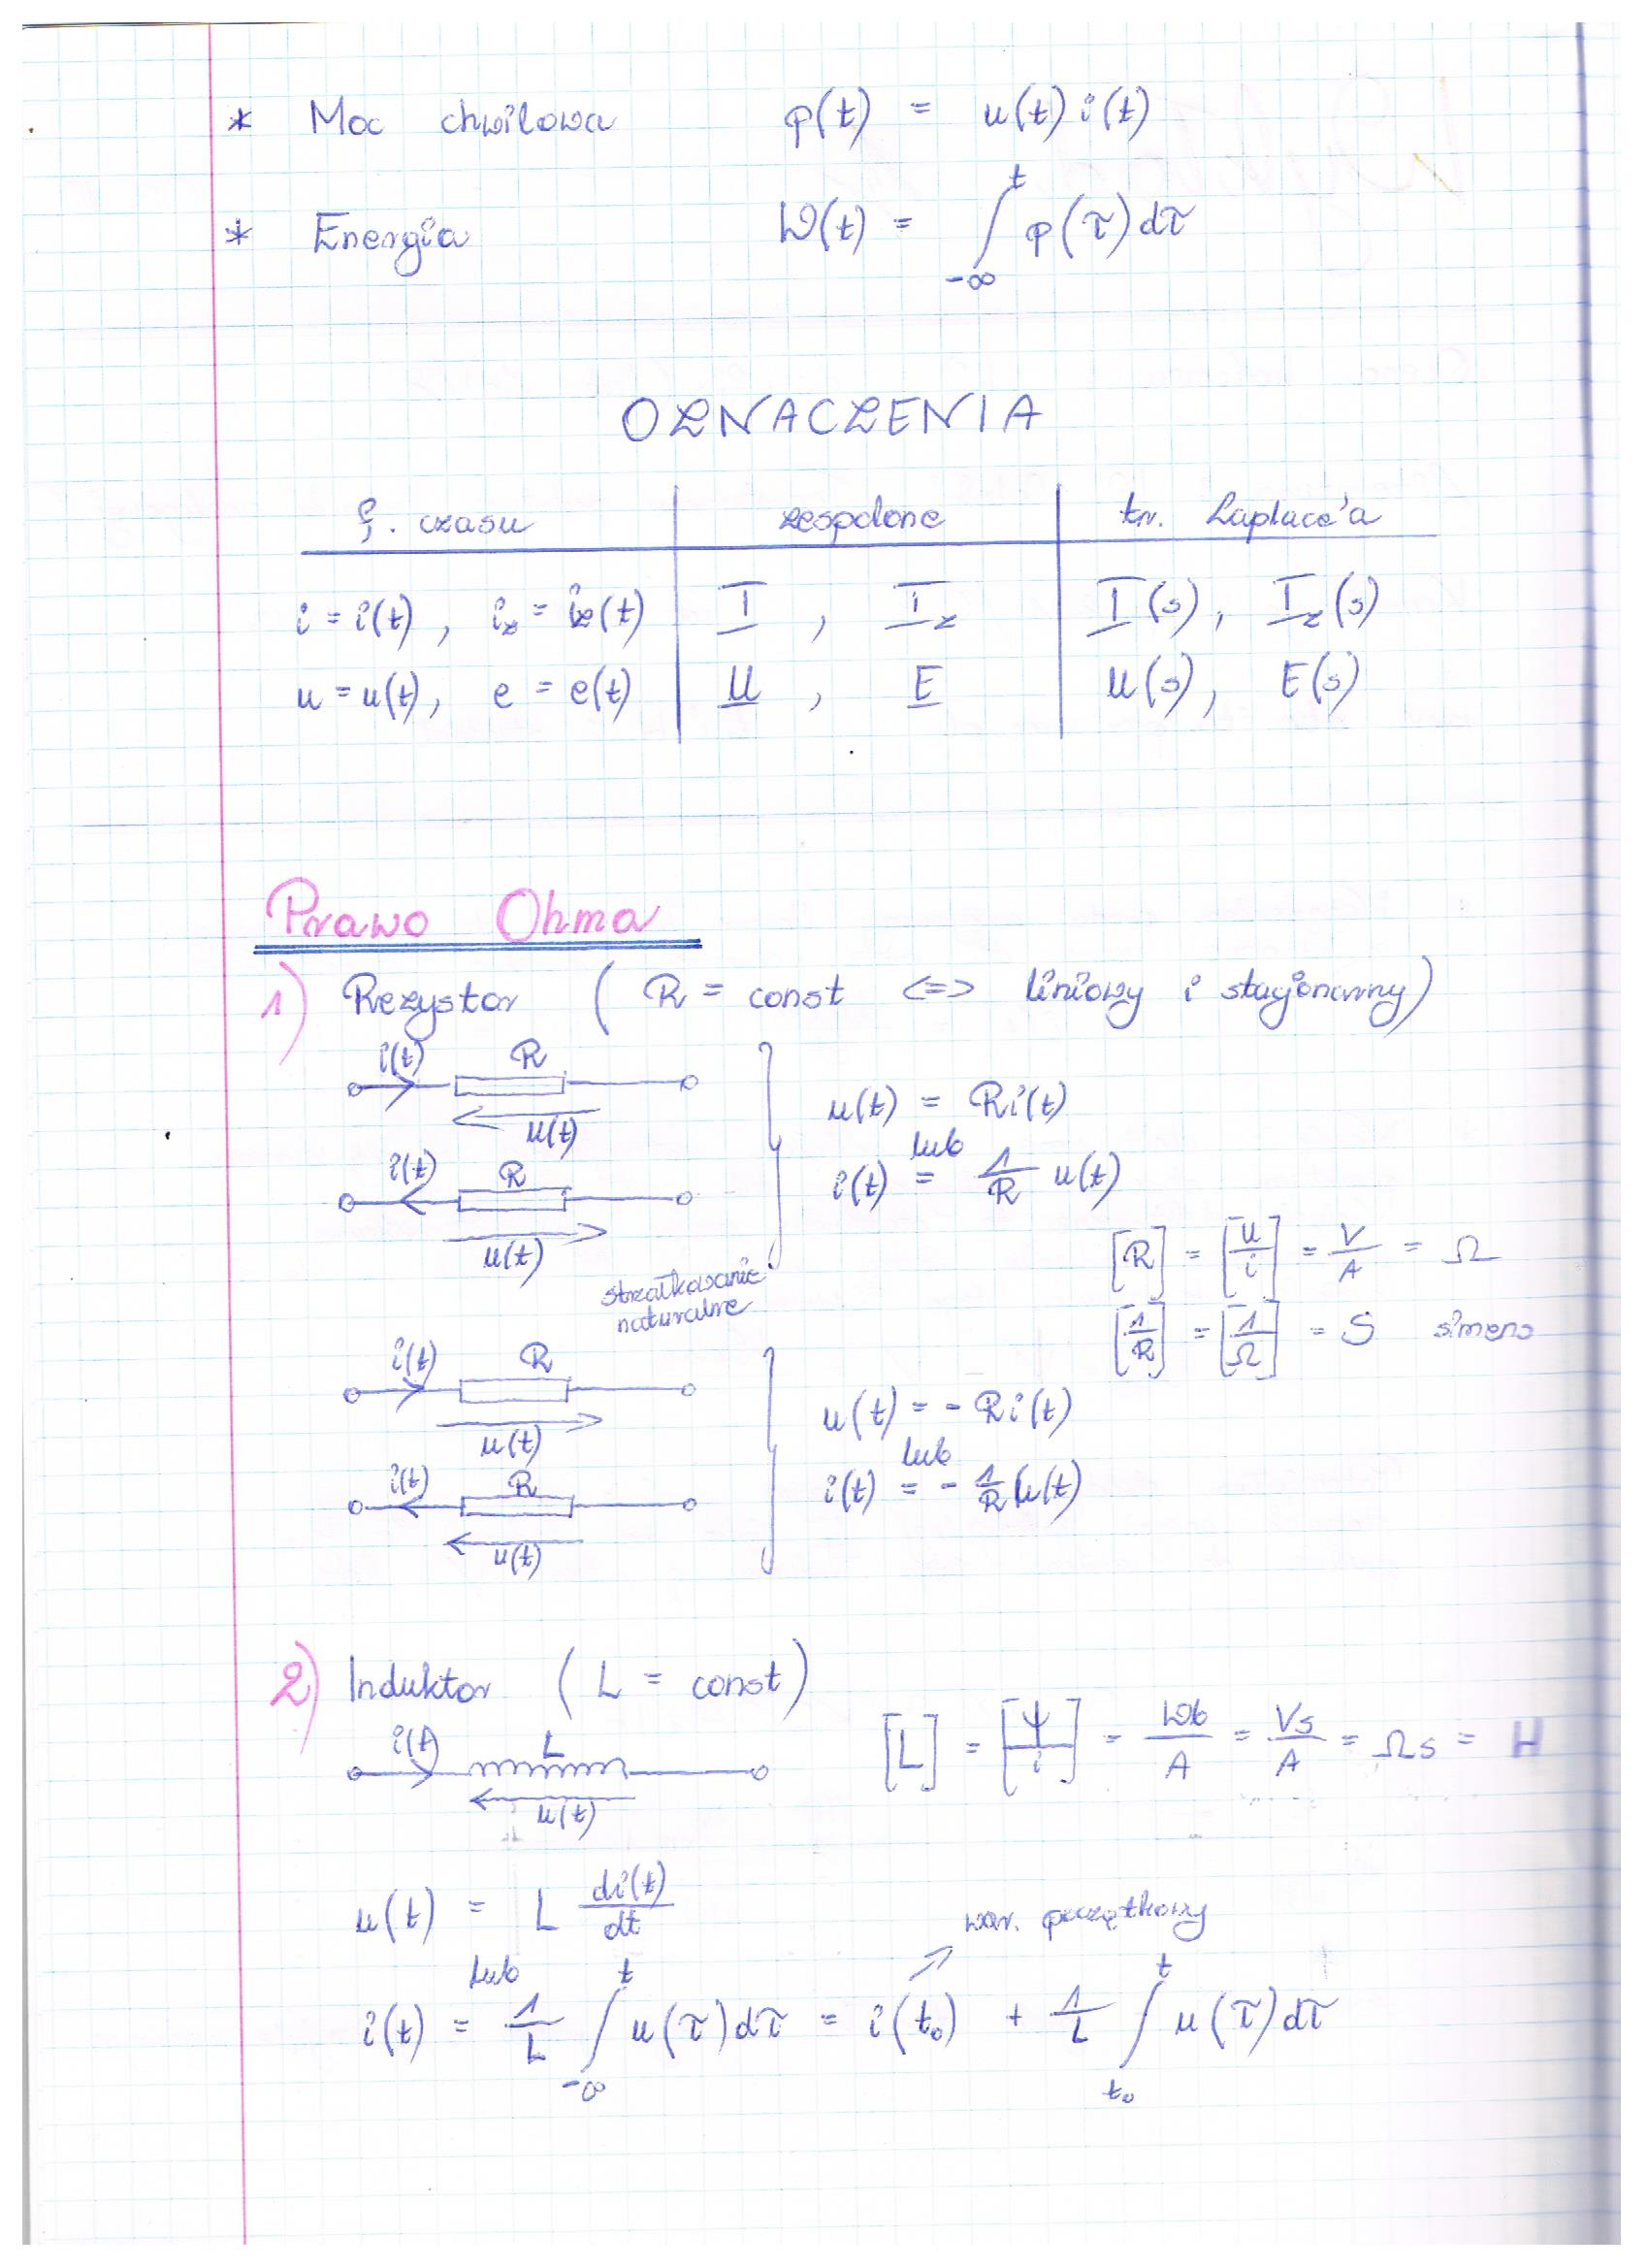 * Moc chwilowa p(t) = u(t) i(t)
* Energia W(t) = ∫_{-∞}^{t} p(τ)dτ
OZNACZENIA
f. czasu | zespolone | tr. Laplace'a
i = i(t), i_z = i_z(t) | I, I_z | I(s), I_z(s)
u = u(t), e = e(t) | U, E | U(s), E(s)
Prawo Ohma
1) Rezystor (R = const <=> liniowy i stacjonarny)
i(t) R
u(t)
u(t) = Ri(t)
lub
i(t) R
u(t)
i(t) = 1/R u(t)
strzałkowanie
naturalne
[R] = [u/i] = V/A = Ω
[1/R] = [1/Ω] = S simens
i(t) R
u(t)
u(t) = - Ri(t)
lub
i(t) R
u(t)
i(t) = - 1/R u(t)
2) Induktor (L = const)
i(t) L
u(t)
[L] = [Ψ/i] = Wb/A = Vs/A = Ωs = H
u(t) = L di(t)/dt
lub
war. początkowy
i(t) = 1/L ∫_{-∞}^{t} u(τ)dτ = i(t₀) + 1/L ∫_{t₀}^{t} u(τ)dτ